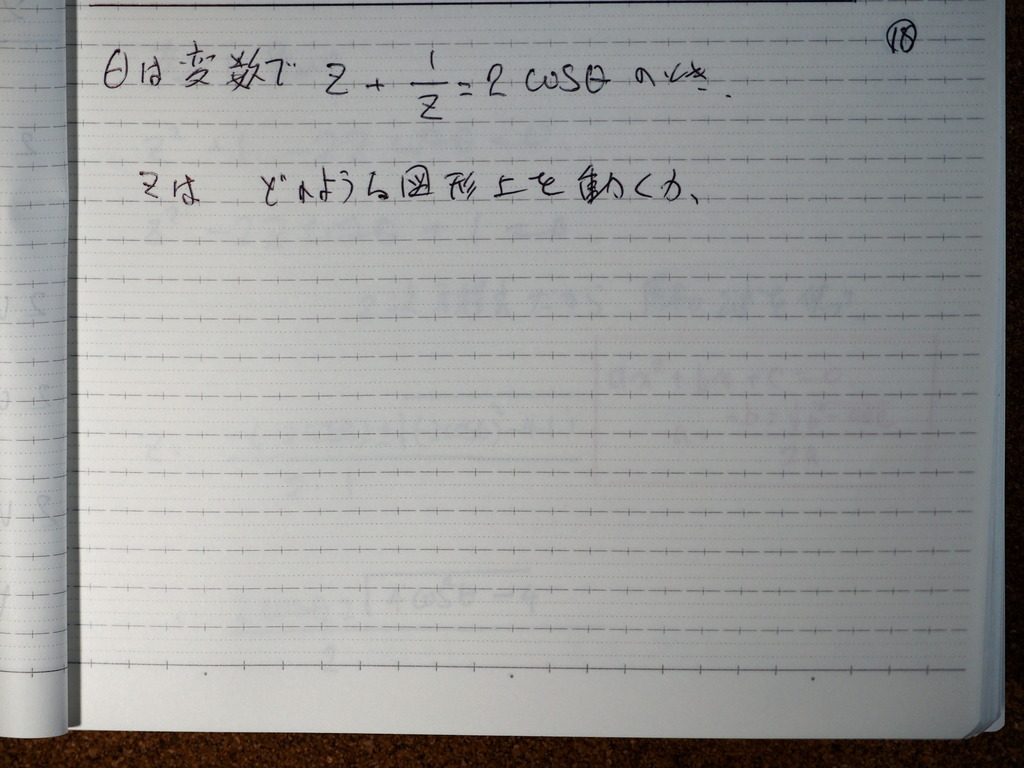 ⑱
θは変数で z + 1/z = 2 cosθ のとき.
zは どのような図形上を動くか、